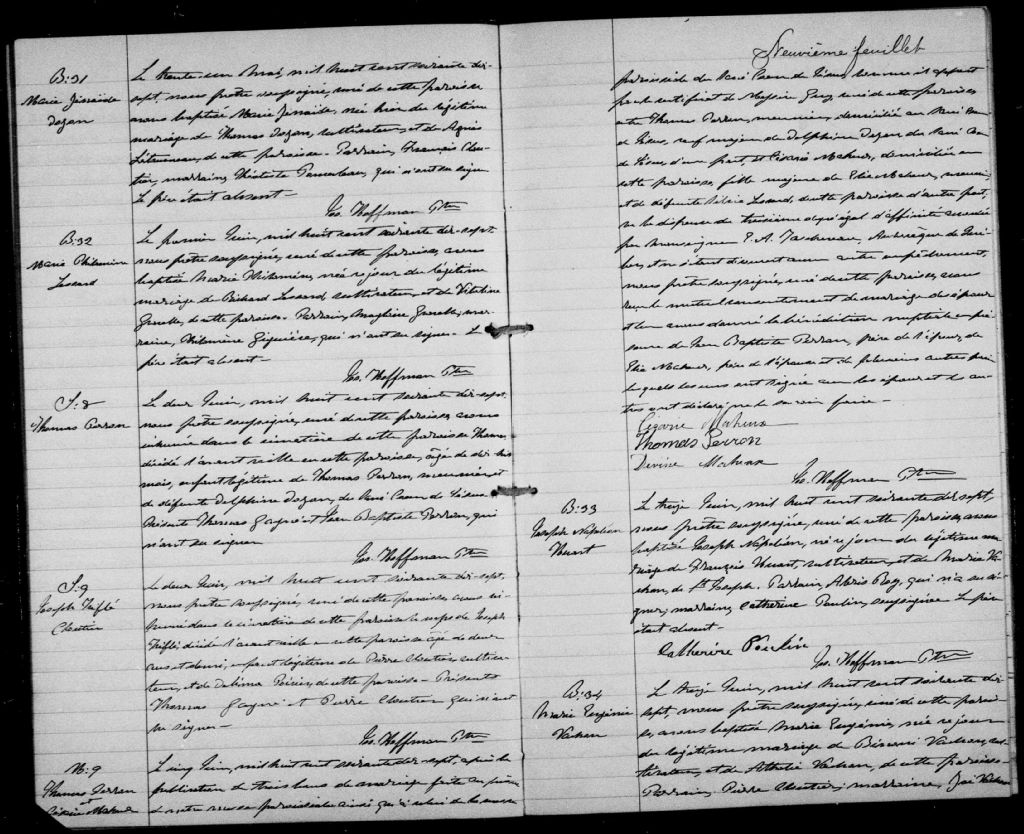 B:31
Marie
Dozan
Le trente-un Mai, mil huit cent soixante dix-
sept, nous prêtre soussigné, curé de cette paroisse
avons baptisé Marie, née hier du légitime
mariage de Thomas Dozan, cultivateur, et de Agnès
de cette paroisse. Parrain, François Clou-
tier, marraine, qui n'ont su signer.
Le père était absent.
Jos. Hoffman Ptre
B:32
Marie Philomène
Lessard
Le premier Juin, mil huit cent soixante dix-sept,
nous prêtre soussigné, curé de cette paroisse, avons
baptisé Marie Philomène, née ce jour du légitime
mariage de Lessard, cultivateur, et de
de cette paroisse. Parrain, mar-
raine, Philomène Giguère, qui n'ont su signer. Le
père était absent.
Jos. Hoffman Ptre
S:8
Thomas Perron
Le deux Juin, mil huit cent soixante dix-sept,
nous prêtre soussigné, curé de cette paroisse, avons
inhumé dans le cimetière de cette paroisse Thomas,
décédé l'avant veille en cette paroisse, âgé de dix huit
mois, enfant légitime de Thomas Perron, meunier, et
de défunte Delphine Dozan, du Sacré Coeur de Jésus.
Présents Thomas Gagné et Jean Baptiste Perron, qui
n'ont su signer.
Jos. Hoffman Ptre
S:9
Joseph Théophile
Cloutier
Le deux Juin, mil huit cent soixante dix-sept,
nous prêtre soussigné, curé de cette paroisse, avons in-
humé dans le cimetière de cette paroisse le corps de Joseph
décédé l'avant veille en cette paroisse âgé de deux
ans et demi, enfant légitime de Pierre Cloutier, cultiva-
teur, et de Delima Poirier, de cette paroisse. Présents
Thomas Gagné et Pierre Cloutier qui n'ont
su signer.
Jos. Hoffman Ptre
M:9
Thomas Perron
et
Césarie Maheux
Le cinq Juin, mil huit cent soixante dix-sept, après la
publication de trois bans de mariage faite au prône
de notre messe paroissiale ainsi qu'à celui de la messe
Neuvième feuillet
paroissiale du Sacré Coeur de Jésus, comme il appert
par le certificat de Messire curé de cette paroisse,
entre Thomas Perron, meunier, domicilié au Sacré Coeur
de Jésus, veuf majeur de Delphine Dozan du Sacré Coeur
de Jésus, d'une part, et Césarie Maheux, domiciliée en
cette paroisse, fille majeure de Elie Maheux, meunier,
et de défunte Lessard, de cette paroisse d'autre part,
vu la dispense du troisième degré égal d'affinité accordée
par Monseigneur E. A. Taschereau, Archevêque de Qué-
bec, et ne s'étant découvert aucun autre empêchement,
nous prêtre soussigné, curé de cette paroisse, avons
reçu le mutuel consentement de mariage des époux
et leur avons donné la bénédiction nuptiale en pré-
sence de Jean Baptiste Perron, frère de l'époux, de
Elie Maheux, père de l'épouse et de plusieurs autres parmi
lesquels les uns ont signé avec les époux et les au-
tres ont déclaré ne le savoir faire.
Cezarie Maheux
Thomas Perron
Devise Maheux
Jos. Hoffman Ptre
B:33
Joseph Napoléon
Huart
Le treize Juin, mil huit cent soixante dix sept,
nous prêtre soussigné, curé de cette paroisse, avons
baptisé Joseph Napoléon, né ce jour du légitime ma-
riage de François Huart, cultivateur, et de Marie Va-
chon, de St Joseph. Parrain, Roy, qui n'a su si-
gner; marraine, Catherine Poulin, soussignée. Le père
était absent.
Catherine Poulin
Jos. Hoffman Ptre
B:34
Marie Eugénie
Vachon
Le treize Juin, mil huit cent soixante dix
sept, nous prêtre soussigné, curé de cette parois-
se, avons baptisé Marie Eugénie, née ce jour
du légitime mariage de Vachon, cul-
tivateur, et de Vachon, de cette paroisse.
Parrain, Pierre Cloutier; marraine, Vachon